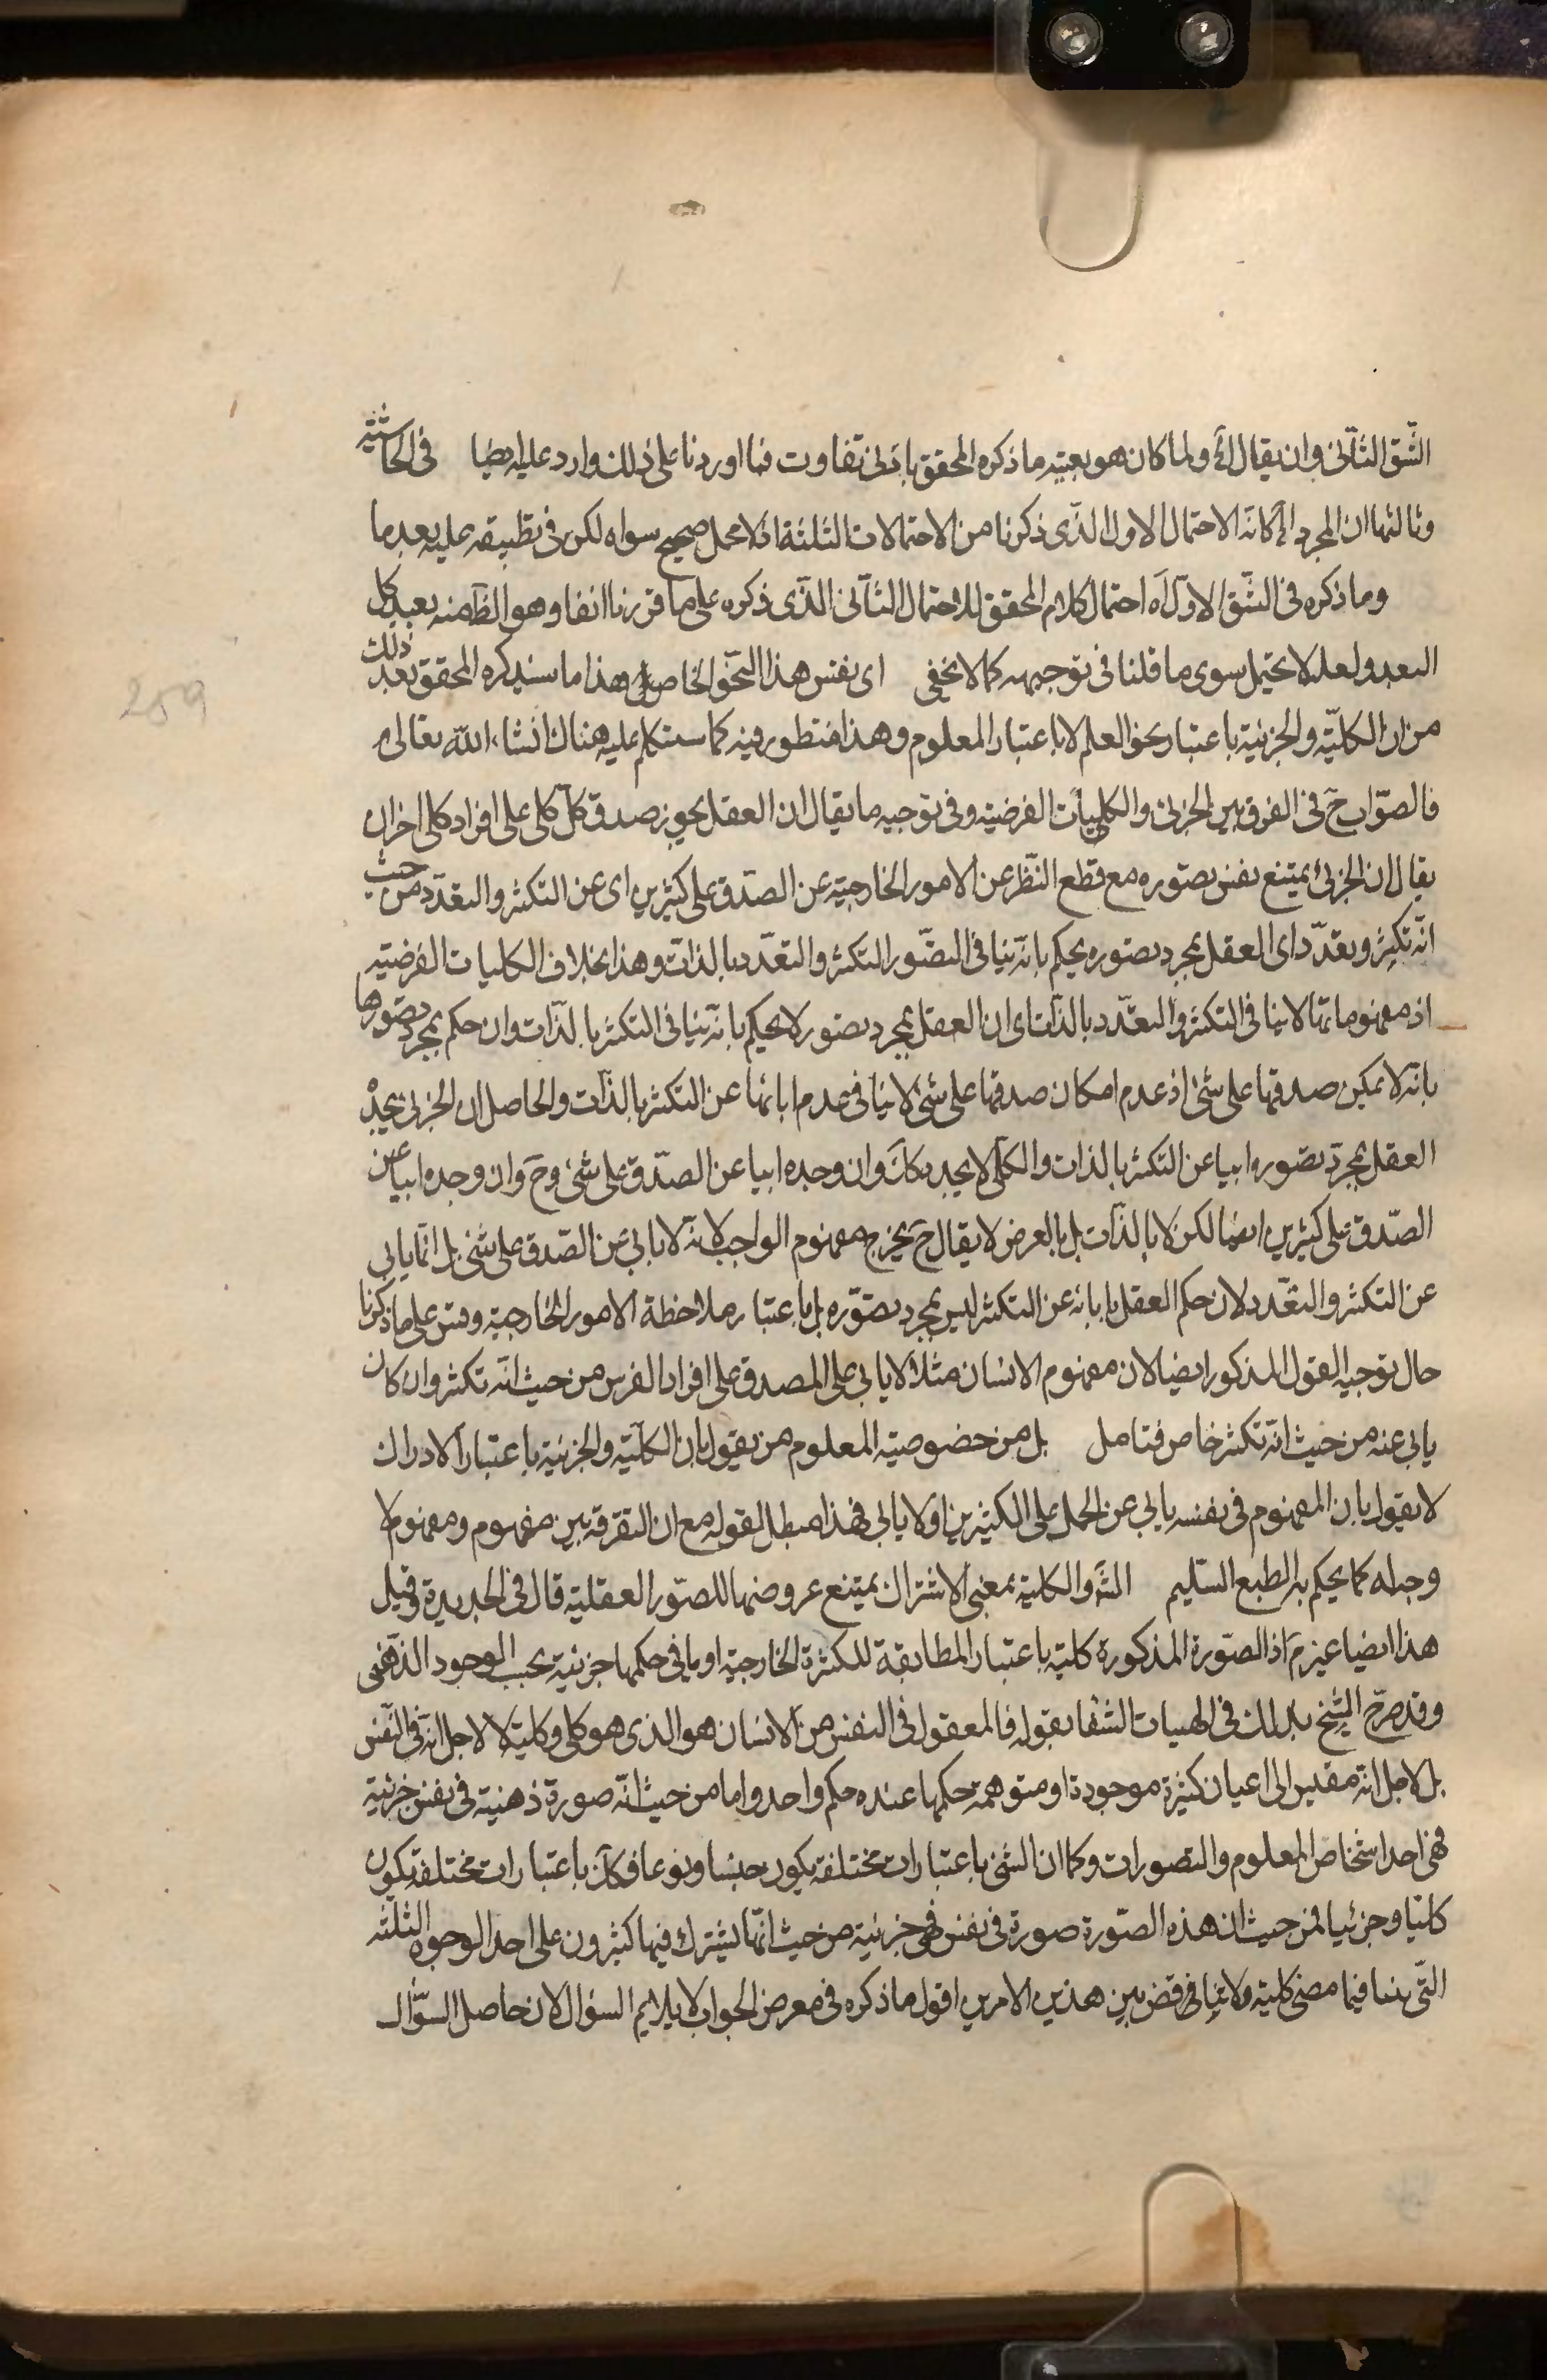 الشّق الثّاني وان يقال لأ ولما كان هو بعينه ما ذكره المحقق بادنى تفاوت فما اوردنا على ذلك وارد عليه ايضا في الحاشية
وثالثها ان المجرد الآ كانه الاحتمال الاول الذّى ذكرنا من الاحتمالات الثلثة اذ لا محمل صحيح سواه لكن في تطبيقه عليه بعد ما
وما ذكره في الشّق الاوّل آه احتمال كلام المحقق للاحتمال الثّاني الذّى ذكره على ما قررنا انفا وهو الظّ منه بعيد كل
البعد ولعله لا يحتمل سوى ما قلنا في توجيهه كما لا يخفى اى نفس هذا النحو الخاص هذا ما سيذكره المحقق بعد ذلك
من ان الكليّة والجزئية باعتبار نحو العلم لا باعتبار المعلوم وهذا منظور فيه كما ستكلم عليه هناك انشاء الله تعالى
فالصّواب حَ في الفرق بين الجزئى والكليات الفرضية وفي توجيه ما يقال ان العقل يجوز صدق كل كلى على افراد كلى اخر ان
يقال ان الجزئى يمتنع نفس تصوره مع قطع النّظر عن الامور الخارجيّة عن الصّدق على كثيرين اى عن التكثر والتعدّد من حيث
انّه تكثر وتعدّد اى العقل بمجرد تصوره يحكم بانّه ينافى التصّور التكثر والتعدّد بالذات وهذا بخلاف الكليات الفرضيّه
اذ مفهوماتها لا ينافى التكثر والتعدّد بالذات اى ان العقل بمجرد تصور لا يحكم بانّه ينافى التكثر بالذّات وان حكم بمجرد تصورها
بانّه لا يمكن صدقها على شئ اذ عدم امكان صدقها على شئ لا ينافى عدم ابائها عن التكثر بالذّات والحاصل ان الجزئى يجدْ
العقل بمجرد تصوره ابيا عن التكثر بالذات والكلّى لا يجد كآنَ وان وجده ابيا عن الصّدق على شئ وحَ وان وجده ابيا عن
الصّدق على كثيرين ايضا لكن لا بالذّات بل بالعرض لا يقال حَ يخرج مفهوم الواجب لانّه لا يابى عن الصّدق على شئ بل انّما يابى
عن التكثر والتعّدد لان حكم العقل بابائه عن التكثر ليس بمجرد تصوّره بل باعتبار ملاحظة الامور الخارجيّة وقس على ما ذكرنا
حال توجيه القول المذكور ايضا لان مفهوم الانسان مثلا لا يابى على المصدق على افراد الفرس من حيث انّه تكثر وان كان
يابى عنه من حيث انّه تكثر خاص فتامل بل من خصوصيّة المعلوم من يقول بان الكليّة والجزئية باعتبار الادراك
لا يقول بان المفهوم في نفسه يابى عن الحمل على الكثيرين او لا يابى فهذا مبطل لقوله مع ان التفرقة بين مفهوم ومفهوم لا
وجه له كما يحكم به الطبع السّليم الشَ والكلية بمعنى الاشتراك يمتنع عروضها للصّور العقلية قال في الجديدة وقيل
هذا ايضا غير مَ اذ الصّورة المذكورة كلية باعتبار المطابقة للكثرة الخارجيّة او ما في حكمها جزئية بحسب الوجود الذّهنى
وقد صرّح الشّيخ بذلك في الهيات الشفا بقوله فالمعقول في النفس من الانسان هو الذى هو كلى وكليته لا لاجل انّه في النّفس
بل لاجل انّه مقيس الى اعيان كثيرة موجودة او متوهمة حكمها عنده حكم واحد واما من حيث انّه صورة ذهنية في نفس جزئية
فهى احد اشخاص المعلوم والتصورات وكما ان الشئ باعتبارات مختلفة يكون جنسا ونوعا فكآنَ باعتبارات مختلفة يكون
كليّا وجزئيا فمن حيث ان هذه الصّورة صورة في نفس فهى جزئية من حيث انّها يشترك فيها كثيرون على احد الوجوه الثلثه
التّى بينا فيما مضى كلية ولا تناقض بين هذين الامرين اقول ما ذكره في معرض الجواب لا يلايم السؤال لان حاصل السوّال
259